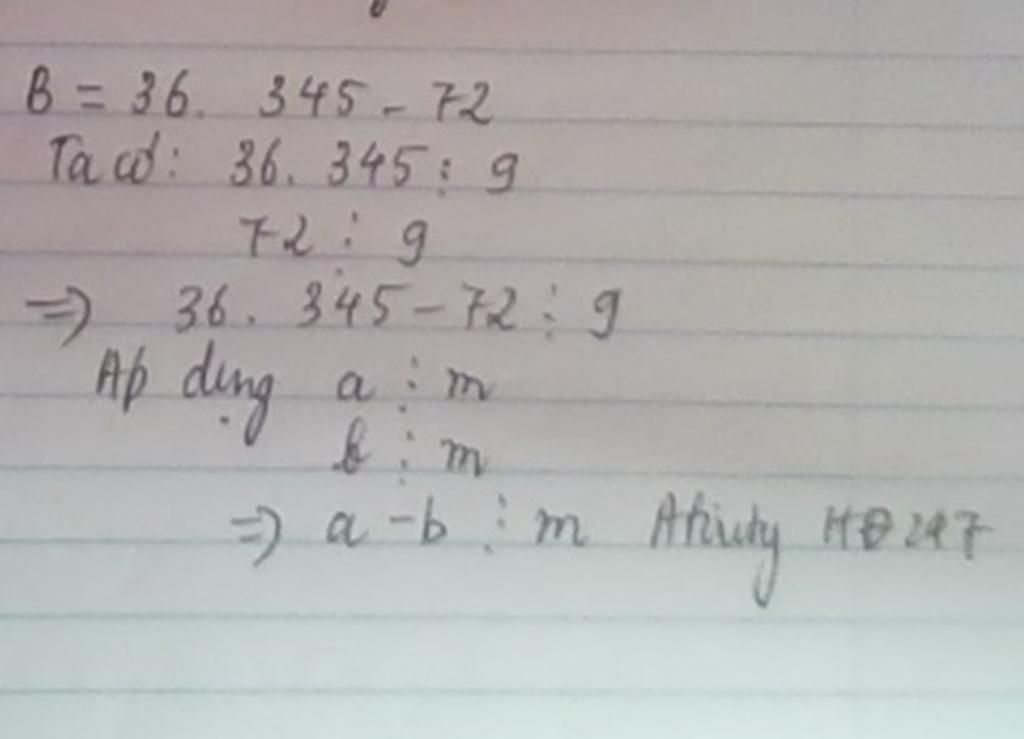 B = 36. 345 - 72
Ta có: 36. 345 ⋮ 9
72 ⋮ 9
=> 36. 345 - 72 ⋮ 9
Áp dụng a ⋮ m
b ⋮ m
=> a - b ⋮ m HĐ247